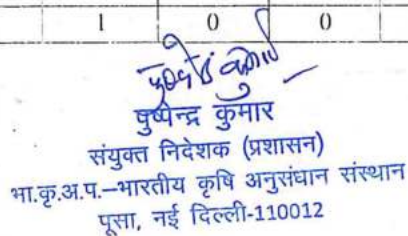 1 0 0
पुष्पेन्द्र कुमार
संयुक्त निदेशक (प्रशासन)
भा.कृ.अ.प.–भारतीय कृषि अनुसंधान संस्थान
पूसा, नई दिल्ली-110012